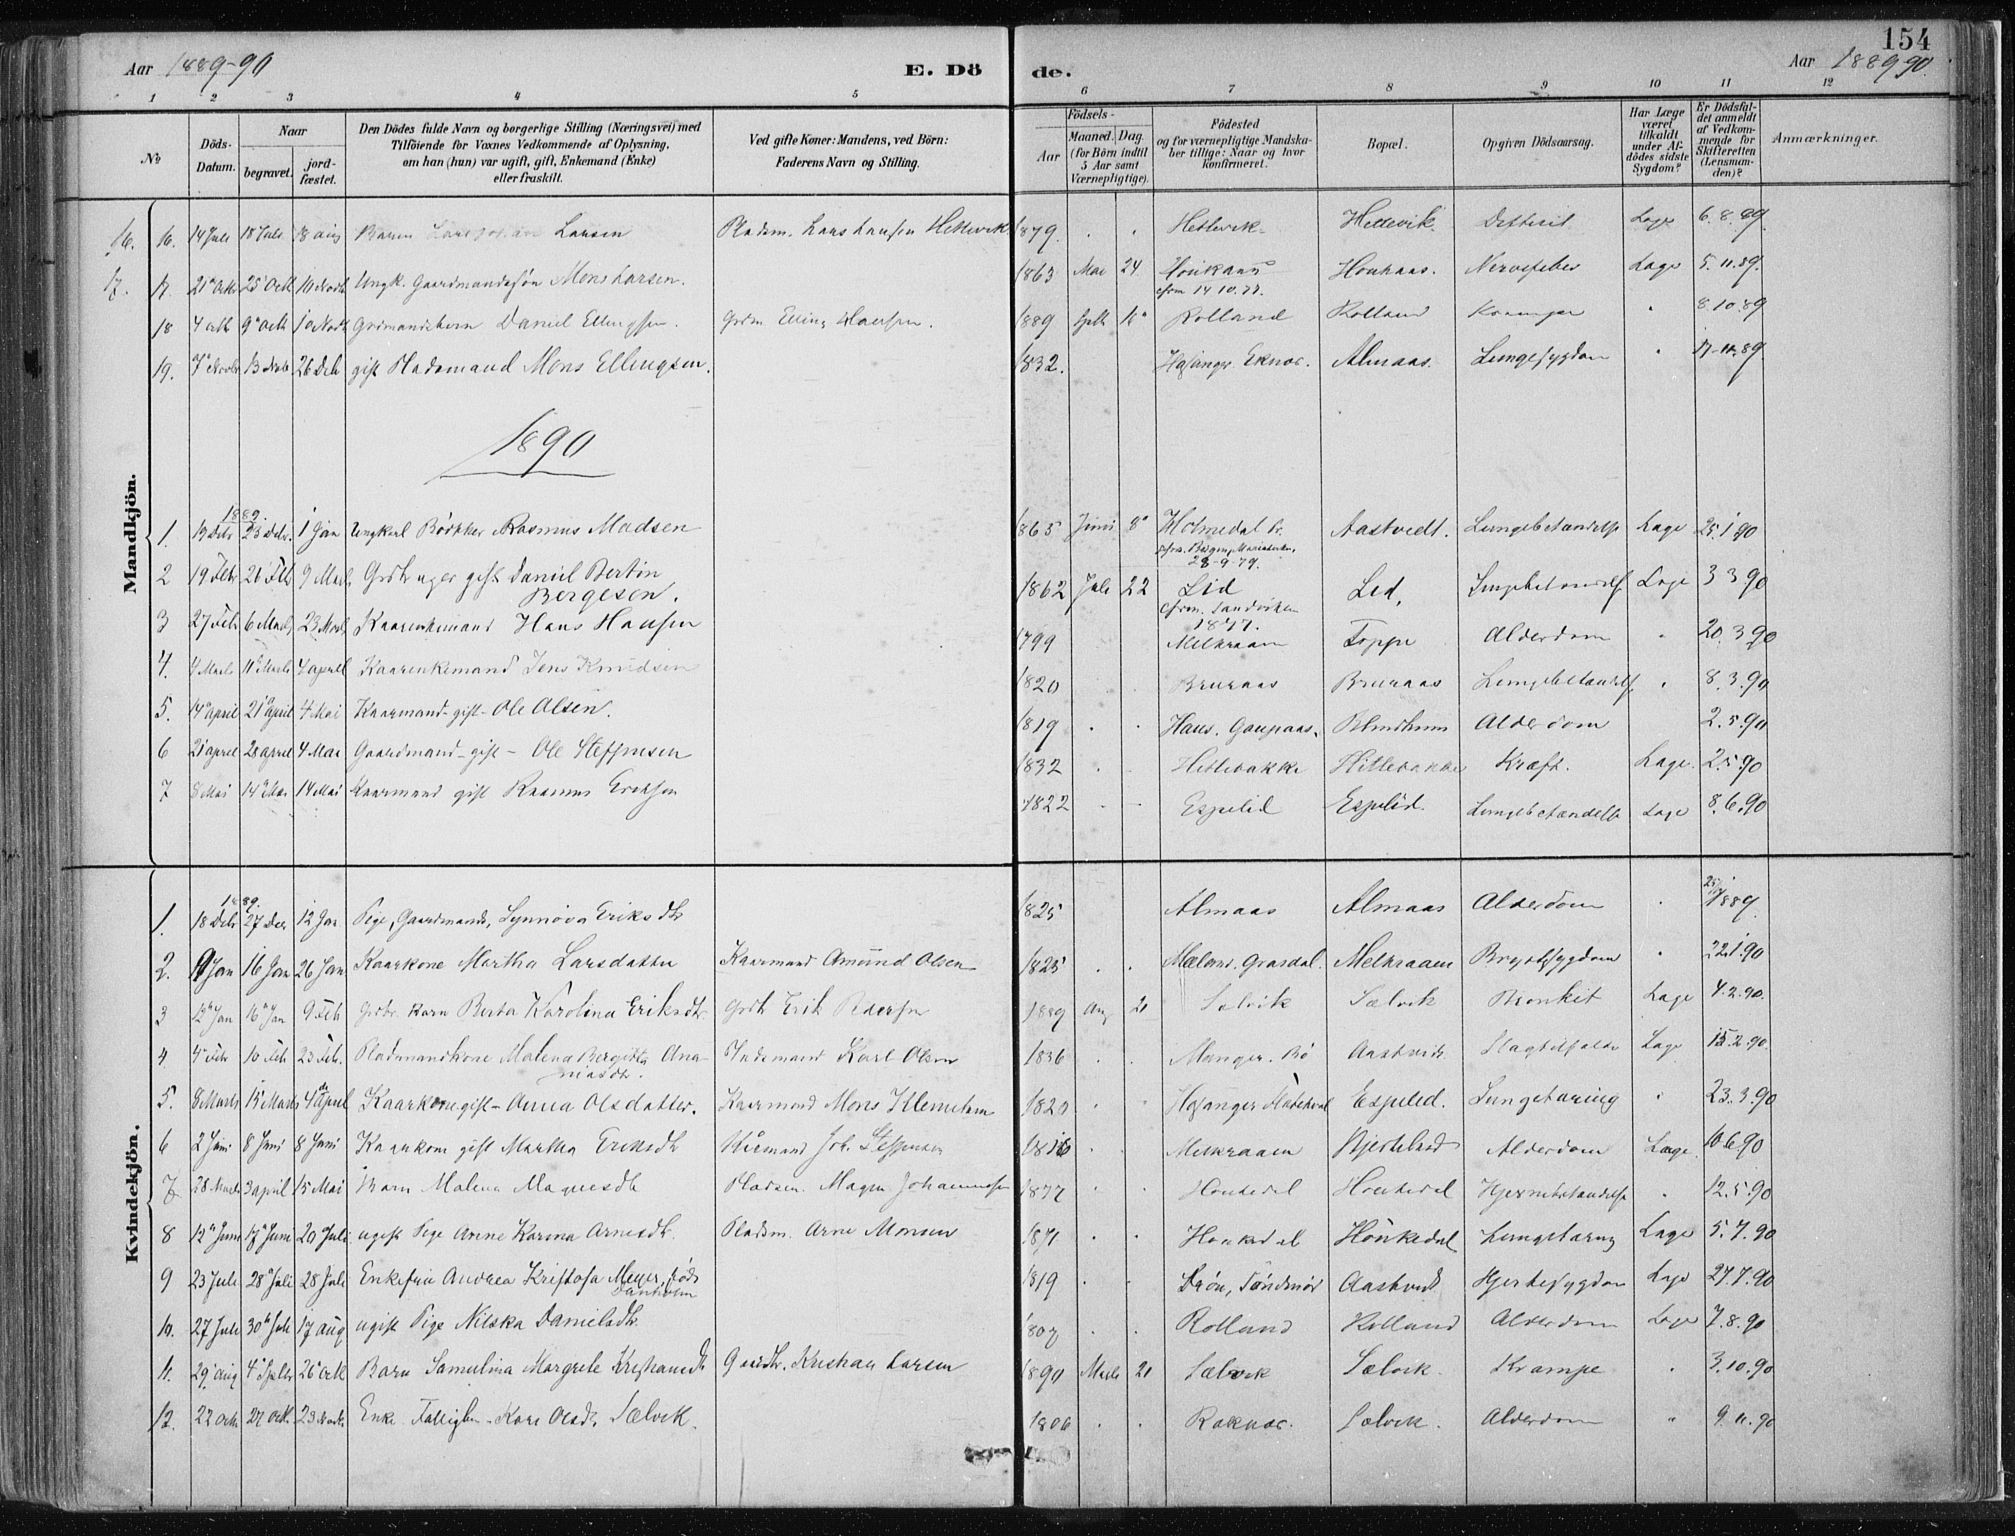 154
Aar 1889-90
E. Dö
de.
Aar 1889-90.
1 2 3 4 5 6 7 8 9 10 11 12
No
Döds-Datum.
Naar
begravet.
jordfæstet.
Den Dödes fulde Navn og borgerlige Stilling (Næringsvei) med
Tilföiende for Voxnes Vedkommende af Oplysning,
om han (hun) var ugift, gift, Enkemand (Enke)
eller fraskilt.
Ved gifte Koner: Mandens, ved Börn:
Faderens Navn og Stilling.
Födsels-
Aar
Maaned. Dag.
(for Börn indtil
5 Aar samt
Værnepligtige).
Födested
og for værnepligtige Mandska-
ber tillige: Naar og hvor
konfirmeret.
Bopæl.
Opgiven Dödsaarsag.
Har Læge
været
tilkaldt
under Af-
dödes sidste
Sygdom?
Er Dödsfal-
det anmeldt
af Vedkom-
mende for
Skifteretten
(Lensman-
den)?
Anmærkninger.
Mandkjön.
16. 16. 14 Juli 18 Juli 18 Aug Barn Larsen Pladsm. Lars Hansen Hettevik 1879 Hettevik Hettevik Difterit Læge 6.8.89.
17. 17. 21 Octb 25 Octb 10 Novb Ungk. Gaardmandssøn Mons Larsen. 1863 Mai 24 Houkaas Houkaas. Nervefeber Læge 5.11.89.
cfrm 14 10.77.
18 4 octb 9 octb 10 Novb Grdmandsbarn Daniel Ellingsen. Grdm Elling Hansen. 1889 Septb Rolland Rolland Krampe " 8.10.89
19. 7 Novb 13 Novb 26 Deb gift Pladsmand Mons Ellingsen. 1832. Hosanger Eknæs. Almaas. Lungesygdom " 17-11.89
1890
1889.
1. 19 Debr 23 Debr. 1 Jan Ungkarl Bödkker Rasmus Madsen 1865 Juni 8 Holmedal Aastvedt. Lungebetændelse Læge 25.1.90
cfrm. Bergen Mariakirken
28-9-79.
2 19 Febr 26 Feb 9 Marts Grdbruger gift Daniel Bertin
Bergesen. 1862 Juli 22 Lid Lid, Lungebetændelse Læge 3 3 90
cfrm. Sandviken
1877.
3 27 Febr 6 Marts 23 Marts Kaarenkemand Hans Hansen 1799 Melkraaen Toppe Alderdom " 20.3.90
4. 4 Marts 11 Marts 4 april Kaarenkemand Jens Knudsen 1820 Bruraas Bruraas Lungebetændelse " 8.3.90
5. 14 april 21 april 4 Mai Kaarmand - gift - Ole Olsen. 1819 Haus. Gaupaas. Alderdom 2.5.90
6 21 april 28 april 4 Mai Gaardmand - gift - Ole Steffensen 1832 Hettebakke Hettebakke Kræft. Læge. 2.5.90
7 8 Mai 14 Mai 14 Mai Kaarmand gift Rasmus Eriksen 1822 Espelid Espelid. Lungebetændelse Læge 8.6.90
Kvindekjön.
1889.
1. 18 Debr 27 Dec 12 Jan Pige, Gaardmands, Synnøva Eriksdtr 1825 Almaas Almaas Alderdom 1889
2. 9 Jan 16 Jan 26 Jan Kaarkone Martha Larsdatter Kaarmand Amund Olsen 1825 Mæland. Grasdal. Melkraaen Brystsygdom " 22.1.90
3 12 Jan 16 Jan 9 Feb Grdbr. barn Berta Karolina Eriksdtr Grdb Erik Pedersen 1889 Aug 21 Sælvik Sælvik Bronkit Læge 4.2.90.
4 4 Febr 10 Feb 23 Feb. Pladsmandkone Malena Bergitta Ana-
niasdtr. Karl Olsen 1836 Manger. Bö Aastvedt Slagtilfælde Læge 15.2.90.
5. 8 Marts 15 Marts 4 april Kaarkone gift - Anna Olsdatter. Kaarmand Mons Klemetsen 1820 Hosanger Espelid. Lungetæring " 23.3.90
6 2 Juni 8 Juni 8 Juni Kaarkone gift Martha Eriksdtr Kårmand Joh. Steffensen 1816 Melkraaen Hjortland Alderdom Læge. 10.6.90
7 28 Marts 3 april 15 Mai Barn Malena Magnesdtr Pladsm. Magne Johannesen 1877 Houkedal Houkedal Hjernebetændelse " 12.5.90
8 12 Juni 17 Juni 20 Juli ugift Pige Anne Karina Arnesdtr. Pladsm. Arne Monsen 1871 Houkedal Houkedal Lungetæring Læge 5.7.90
9 23 Juli 28 Juli 28 Juli Enkefrue Andrea Kristofa Meyer, født
Danholm 1819 Søndmör Aastvedt Hjertesygdom Læge 27.7.90
10. 27 Juli 30 Juli 17 aug ugift Pige Nilska Danielsdtr. 1807 Rolland Rolland Alderdom Læge 7.8.90
11. 29 aug 4 Septbr 26 octb Barn Samulina Margrete Kristiansdtr Gaardbr. Kristian Larsen 1890 Marts 21 Sælvik Sælvik. Krampe " 3.10.90
12. 22 octb 27 octb. 23 Novb Enke Fattiglem - Kari Olsdtr Sælvik. 1806 Raknæs. Sælvik. Alderdom " 9.11.90